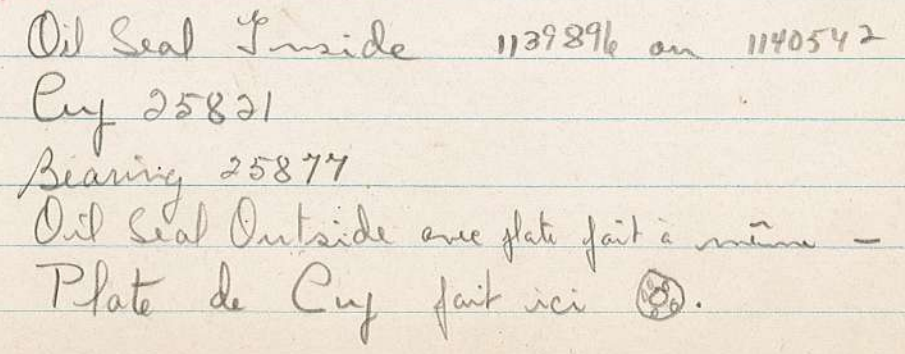 Oil Seal Inside 1139896 ou 1140542
Cup 25821
Bearing 25877
Oil Seal Outside avec plate fait à même -
Plate de Cup fait ici